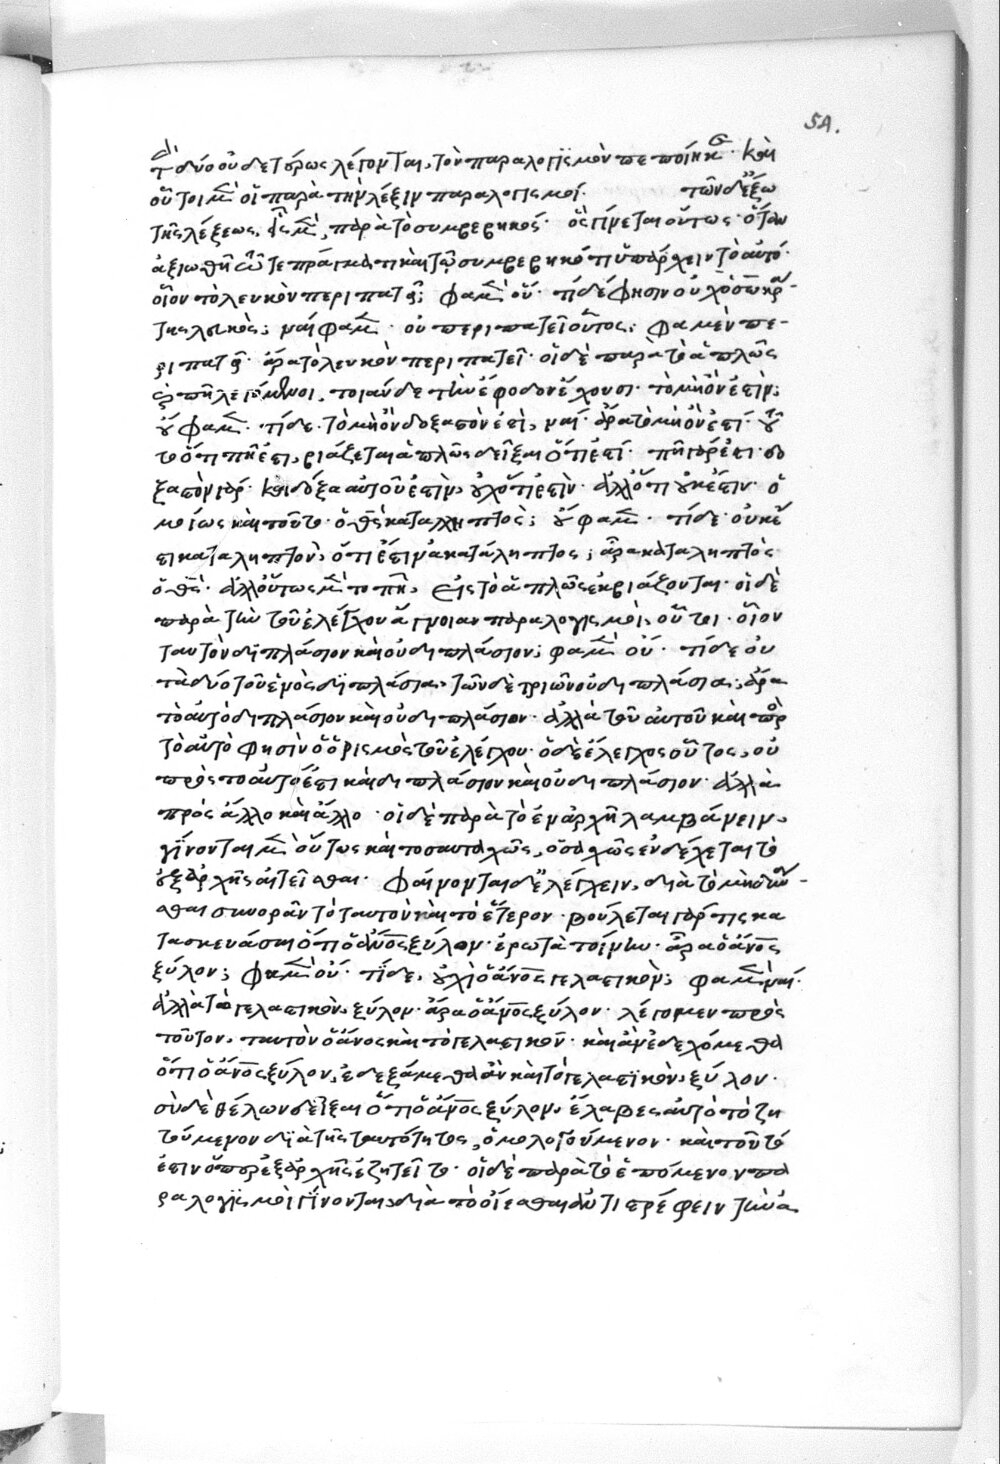 54.
τὸ δύο οὐδετέρως λέγονται, τὸν παραλογισμὸν πεποίηκε. καὶ
οὗτοι μὲν οἱ παρὰ τὴν λέξιν παραλογισμοί. τῶν δ' ἔξω
τῆς λέξεως, εἷς μὲν, παρὰ τὸ συμβεβηκός. ὃς γίνεται οὕτως. ὅταν
ἀξιωθῆ ὥστε πράγματι καὶ τῶ συμβεβηκότι ὑπάρχειν τὸ αὐτό.
οἷον τὸ λευκὸν περιπατεῖ; φαμὲν οὔ. τί δέ φησιν οὐχὶ ὁ σωκρά-
της λευκὸς; ναί φαμεν. οὐ περιπατεῖ οὗτος; φαμὲν πε-
ριπατεῖ. ἄρα τὸ λευκὸν περιπατεῖ. οἱ δὲ παρὰ τὸ ἁπλῶς
ἢ πῆ λεγόμενοι, τοιάνδε τὴν ἔφοδον ἔχουσι. τὸ μὴ ὄν ἐστίν;
οὔ φαμεν. τί δε. τὸ μὴ ὂν δοξαστόν ἐστι, ναί. ἄρα τὸ μὴ ὂν ἐστί.
τὸ ὅτι πῆ ἐστι, βιάζεται ἁπλῶς δεῖξαι ὅτι ἐστί. πῆ γάρ ἐστι δο
ξαστὸν γάρ. καὶ δόξα αὐτοῦ ἐστὶν, οὐχ ὅτι ἐστὶν. ἀλλ' ὅτι οὐκ ἔστιν. ὁ
μοίως καὶ τοῦτο. ὁ θεὸς καταληπτὸς; οὔ φαμεν. τί δε. οὐκ ἔ
στι καταληπτὸν, ὅτι ἐστὶν ἀκατάληπτος; ἄρα καταληπτὸς
ὁ θεός. ἀλλ' οὕτως μὲν τὸ πῆ, εἰς τὸ ἁπλῶς ἐκβιάζονται. οἱ δὲ
παρὰ τὴν τοῦ ἐλέγχου ἄγνοιαν παραλογισμοὶ, οὗτοι. οἷον
ταυτὸν διπλάσιον καὶ οὐ διπλάσιον; φαμὲν οὔ. τί δε οὐ
τὰ δύο τοῦ ἑνὸς διπλάσια, τῶν δὲ τριῶν οὐ διπλάσια; ἄρα
τὸ αὐτὸ διπλάσιον καὶ οὐ διπλάσιον. ἀλλὰ τοῦ αὐτοῦ καὶ πρὸς
τὸ αὐτὸ φησὶν ὁ ὁρισμὸς τοῦ ἐλέγχου. ὁ δὲ ἔλεγχος οὗτος, οὐ
πρὸς τὸ αὐτό ἐστι καὶ διπλάσιον καὶ οὐ διπλάσιον. ἀλλὰ
πρὸς ἄλλο καὶ ἄλλο. οἱ δὲ παρὰ τὸ ἐν ἀρχῆ λαμβάνειν,
γίνονται μὲν οὕτως καὶ τοσαυταχῶς, ὁσαχῶς ἐνδέχεται τὸ
ἐξ ἀρχῆς αἰτεῖσθαι. φαίνονται δ' ἐλέγχειν, διὰ τὸ μὴ δύνα-
σθαι συνορᾶν τὸ ταυτὸν καὶ τὸ ἕτερον. βούλεται γάρ τις κα
τασκευάσαι ὅτι ὁ ἄνος ξύλον. ἐρωτᾶ τοίνυν. ἆρα ὁ ἄνος
ξύλον; φαμὲν οὔ. τί δε, οὐχὶ ὁ ἄνος γελαστικὸν; φαμὲν ναί.
ἀλλὰ τὸ γελαστικὸν, ξύλον. ἄρα ὁ ἄνος ξύλον. λέγομεν πρὸς
τοῦτον, ταυτὸν ὁ ἄνος καὶ τὸ γελαστικὸν. καὶ ἂν ἐδεχόμεθα
ὅτι ὁ ἄνος ξύλον, ἐδεξάμεθα ἂν καὶ τὸ γελαστικὸν, ξύλον.
σὺ δὲ θέλων δεῖξαι ὅτι ὁ ἄνος ξύλον, ἔλαβες αὐτὸ τὸ ζη
τούμενον διὰ τῆς ταυτότητος, ὁμολογούμενον. καὶ τοῦτό
ἐστιν ὅπερ ἐξ ἀρχῆς ἐζητεῖτο. οἱ δὲ παρὰ τὸ ἑπόμενον πα
ραλογισμοὶ γίνονται, διὰ τὸ οἴεσθαι ἀντιστρέφειν τὴν ἀ-